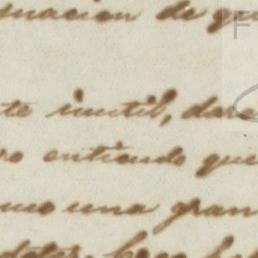 macion de que
te inutil, dare
ro entiendo que
mo una gran